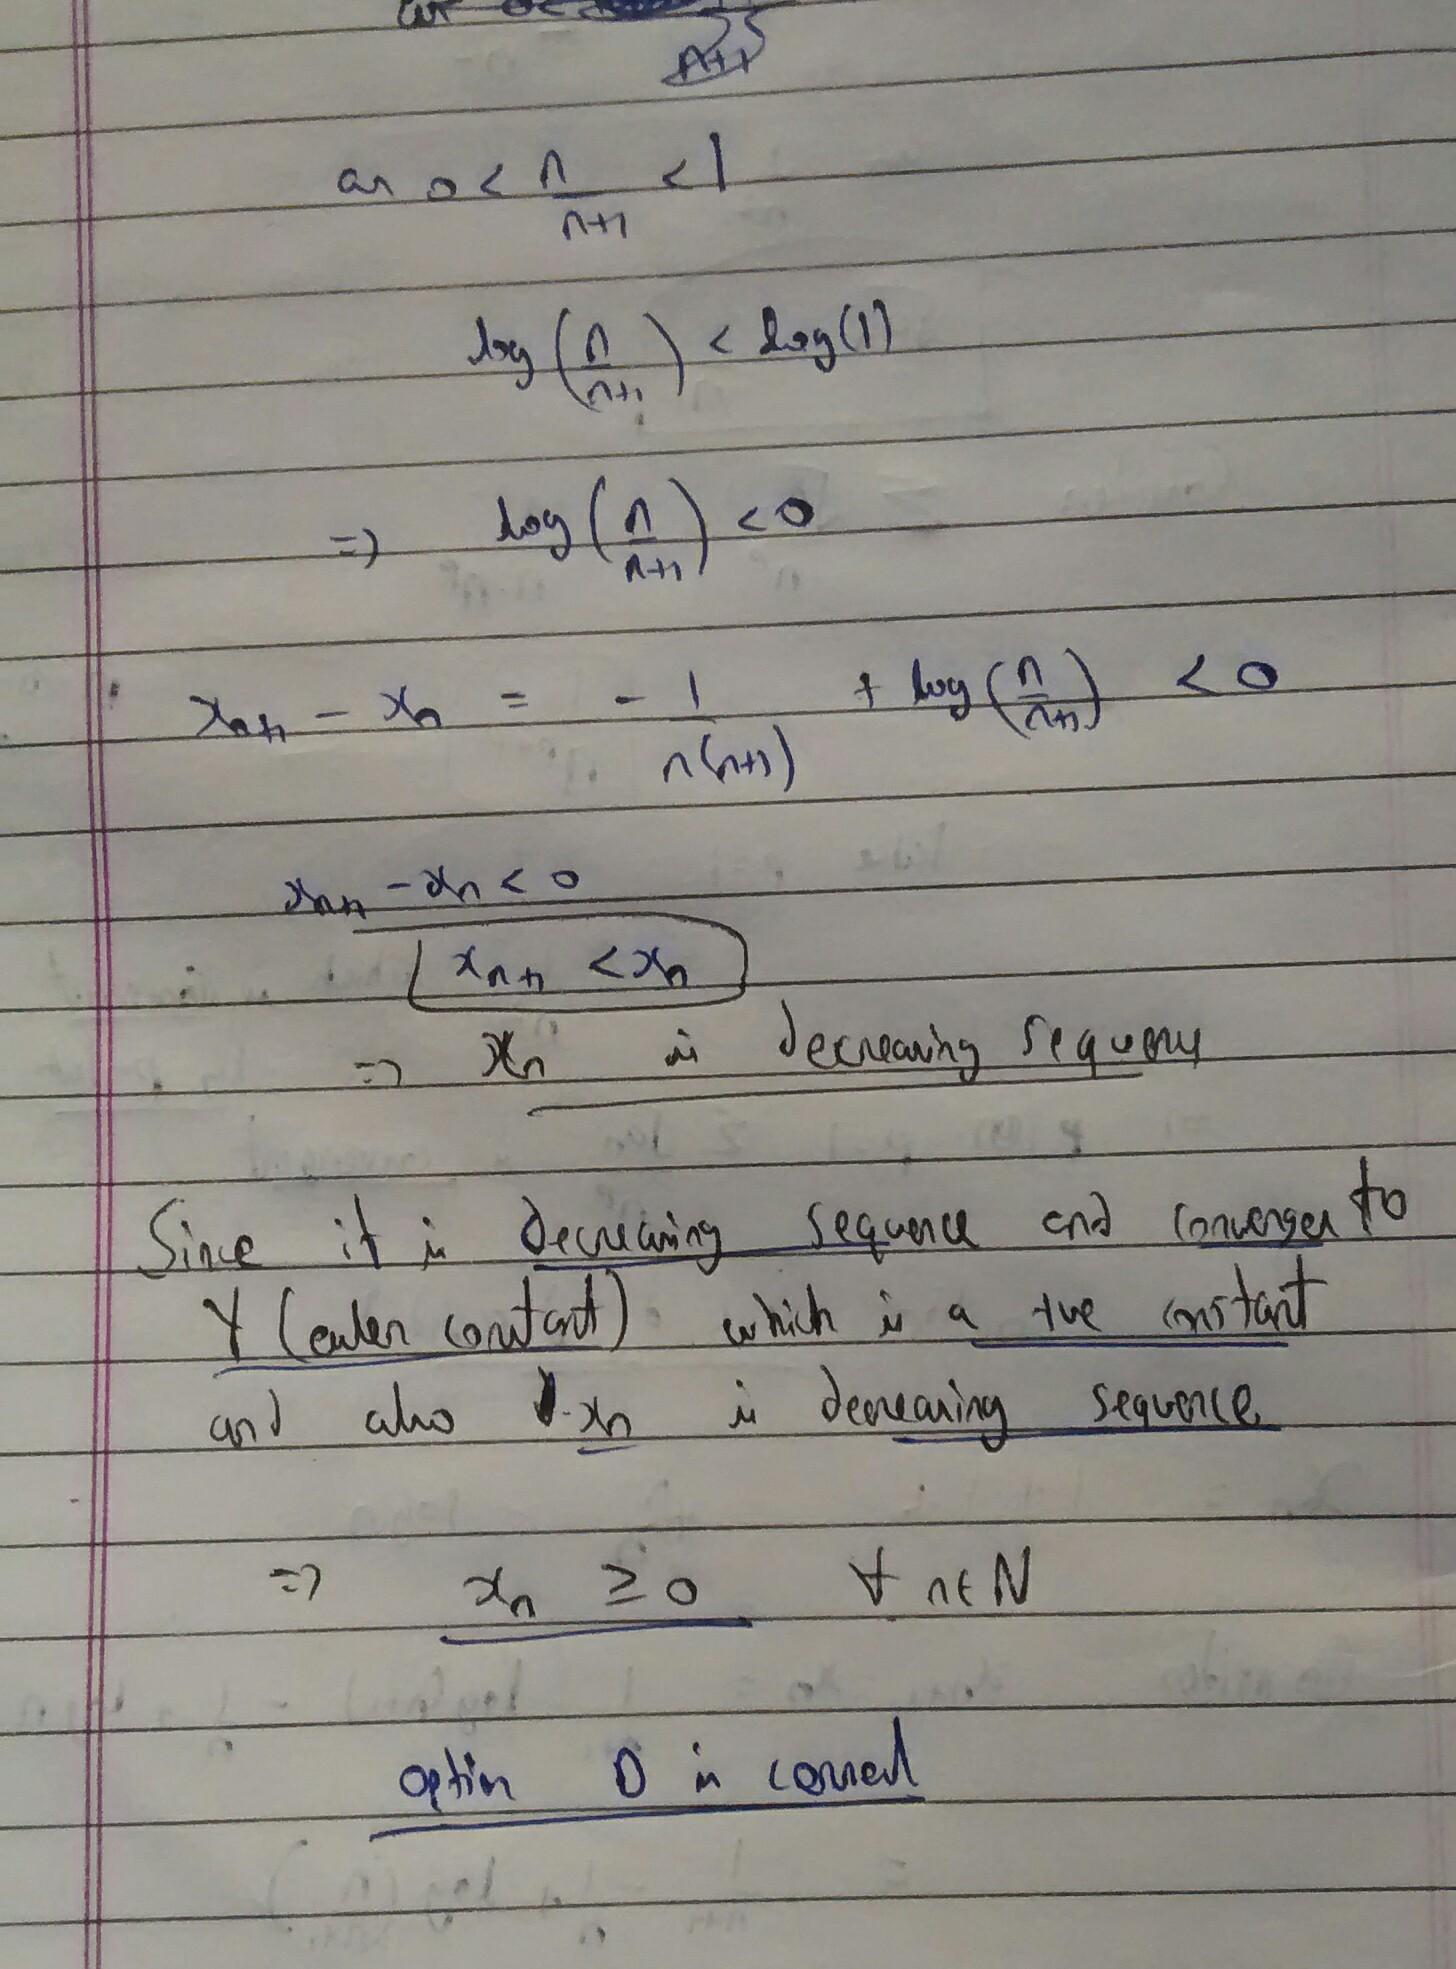 n+1
as 0 < n/n+1 < 1
log (n/n+1) < log(1)
=> log (n/n+1) < 0
xn+1 - xn = - 1/n(n+1) + log (n/n+1) < 0
xn+1 - xn < 0
xn+1 < xn
=> xn is decreasing sequence
Since it is decreasing sequence and converges to
γ (euler constant) which is a +ve constant
and also xn is decreasing sequence.
=> xn ≥ 0 ∀ n∈N
option D is correct